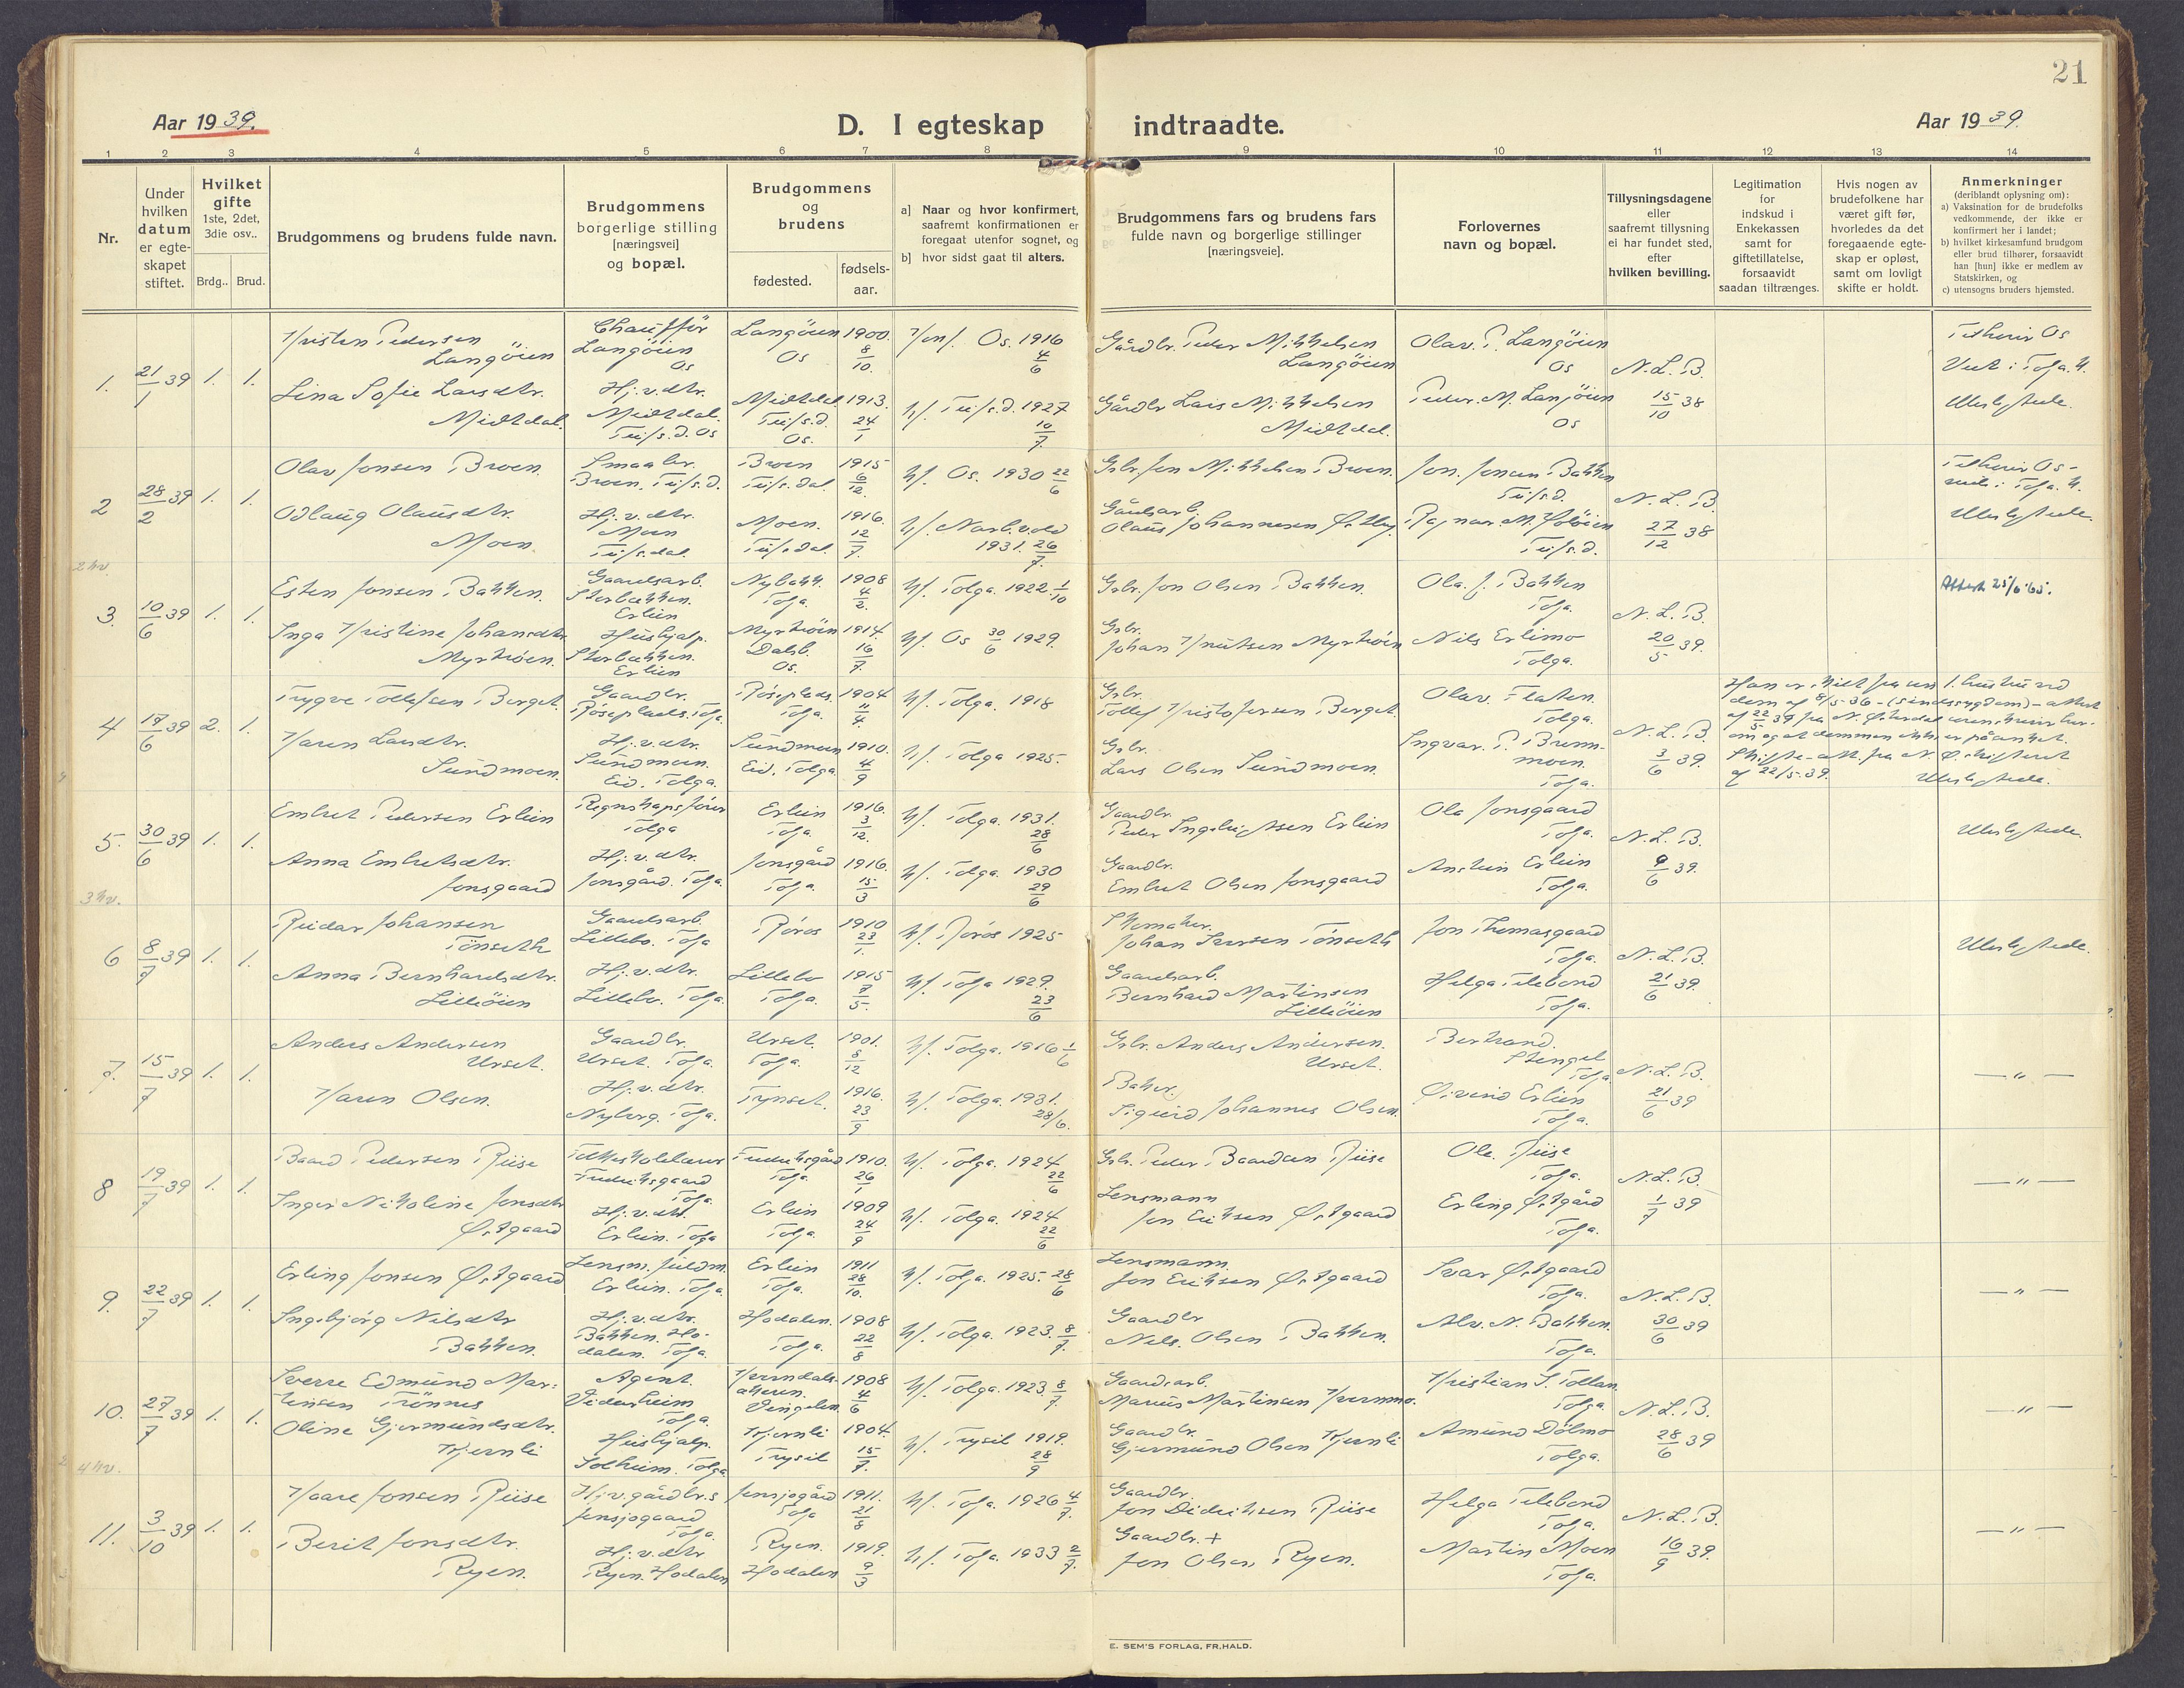 21
Aar 1939.
D. I egteskap indtraadte.
Aar 1939.
1 2 3 4 5 6 7 8 9 10 11 12 13 14
Nr.
Under hvilken datum er egte-skapet stiftet.
Hvilket gifte
1ste, 2det, 3die osv..
Brdg.. Brud.
Brudgommens og brudens fulde navn.
Brudgommens borgerlige stilling [næringsvei] og bopæl.
Brudgommens og brudens
fødested.
fødsels-aar.
a] Naar og hvor konfirmert, saafremt konfirmationen er foregaat utenfor sognet, og
b] hvor sidst gaat til alters.
Brudgommens fars og brudens fars fulde navn og borgerlige stillinger [næringsveie].
Forlovernes navn og bopæl.
Tillysningsdagene eller saafremt tillysning ei har fundet sted, efter hvilken bevilling.
Legitimation for indskud i Enkekassen samt for giftetillatelse, forsaavidt saadan tiltrænges.
Hvis nogen av brudefolkene har været gift før, hvorledes da det foregaaende egte-skap er opløst, samt om lovligt skifte er holdt.
Anmerkninger
(deriblandt oplysning om):
a) Vaksination for de brudefolks vedkommende, der ikke er konfirmert her i landet;
b) hvilket kirkesamfund brudgom eller brud tilhører, forsaavidt han [hun] ikke er medlem av Statskirken, og
c) utensogns bruders hjemsted.
1. 21/1 39 1. 1.
Kristen Pedersen Langöien
Chaufför Langöien Os
Langöien Os
1900. 8/10.
Konf. Os. 1916 4/6
Gårdbr. Peder Mikkelsen Langöien
Olav. P. Langöien Os
N.L.B. 15/10 38
Lina Sofie Larsdtr. Midtdal.
Hj.v.dtr. Midtdal. Tufs.d. Os
Midtdal Tufs.d. Os.
1913. 24/1
kf. Tufs.d. 1927 10/7
Gårdbr Lars Mikkelsen Midtdal.
Peder. M. Langöien Os
2 28/2 39 1. 1.
Olav Jonsen Broen.
Smaabr. Broen. Tufs.d.
Broen Tufs.dal
1915 6/12.
kf. Os. 1930 22/6
Gbr. Jon Mikkelsen Broen.
Jon. Jonsen Bakken Tufs.d.
N.L.B. 27/12 38
Odlaug Olausdtr. Moen
Hj.v.dtr. Moen Tufs.dal
Moen. Tufsdal.
1916. 12/7.
1931. 26/7.
Gaardsarb. Olaus Johannesen
Ragnar. M. Tufs.d.
2 kv.
3. 10/6 39 1. 1.
Esten Jonsen Bakken.
Gaardsarb. Storbækken. Erlien
Nybakk. Tolga.
1908 4/2.
kf. Tolga. 1922 1/10
Gbr. Jon Olsen Bakken.
Ola. J. Bakken Tolga.
N.L.B. 20/5 39.
Attest 25/6 '65.
Inga Kristine Johansdtr. Myrmoen.
Hushjelp. Storbækken. Erlien
Dalsb. Os.
1914. 16/7.
kf. Os 30/6 1929.
Gbr. Johan Knutsen
Nils Erlimo Tolga.
4 17/6 39 2. 1.
Trygve Tollefsen Berget.
Gaardbr. Röseplads. Tolga.
Röseplads. Tolga.
1904 11/4.
kf. Tolga. 1918
Gbr. Tollef Kristofersen Berget.
Olav. Flaten. Tolga.
N.L.B. 3/6 39.
Karen Larsdtr. Sundmoen.
Hj.v.dtr. Sundmoen. Eid. Tolga.
Sundmoen Eid. Tolga.
1910. 4/9
kf. Tolga 1925.
Gbr. Lars Olsen Sundmoen.
Ingvar. P. Bremmoen. Tolga.
5. 30/6 39 1. 1.
Embret Pedersen Erlien
Regnskapsförer Tolga
Erlien Tolga.
1916. 3/12.
kf. Tolga. 1931. 28/6
Gaardbr. Peder Ingebrigtsen Erlien
Ola Jonsgaard Tolga.
N.L.B. 9/6 39.
Anna Embretsdtr. Jonsgaard
Hj.v.dtr. Jonsgård. Tolga.
Jonsgård Tolga.
1916. 15/3
kf. Tolga. 1930 29/6
Gaardbr. Embret Olsen Jonsgaard
Anstein Erlien Tolga.
3 kv.
6 8/7 39 1. 1.
Reidar Johansen Tönseth
Gaardsarb. Lillebo. Tolga
Röros
1910 23/1.
kf. Röros 1925
Skomaker. Johan Iversen Tönseth
Jon Thomasgaard Tolga.
N.L.B. 21/6 39.
Anna Bernhardsdtr. Lilleöien
Hj.v.dtr. Lillebo. Tolga.
Lillebo Tolga.
1915 7/5.
kf. Tolga 1929. 23/6
Gaardsarb. Bernhard Martinsen Lilleöien
Helga Telebond Tolga.
7. 15/7 39 1. 1.
Anders Andersen Urset.
Gaardbr. Urset. Tolga.
Urset. Tolga.
1901. 8/12
kf. Tolga. 1916 1/6
Gbr. Anders Andersen. Urset.
Bertrand. Stengel Tolga
N.L.B. 21/6 39
— „ —
Karen Olsen.
Hj.v.dtr. Nyberg. Tolga.
Tynset.
1916. 23/9
kf. Tolga. 1931. 28/6.
Baker. Sigurd Johannes Olsen.
Öivind Erlien Tolga.
8 19/7 39 1. 1.
Baard Pedersen Riise
Fredriksgaard Tolga.
Fredriksgård Tolga.
1910. 26/1
kf. Tolga. 1924 22/6
Gbr. Peder Baardsen Riise
Ole. Riise Tolga.
N.L.B. 1/7 39
— „ —
Inger Nikoline Jonsdtr. Östgaard
Hj.v.dtr. Erlien. Tolga
Erlien Tolga.
1909 24/9
kf. Tolga. 1924 22/6
Lensmann Jon Eriksen Östgaard
Erling Östgård Tolga.
9. 22/7 39 1. 1.
Erling Jonsen Östgaard
Lensm. fuldm. Erlien. Tolga.
Erlien Tolga.
1911 28/10.
kf. Tolga. 1925. 28/6
Lensmann. Jon Eriksen Östgaard
Ivar Östgaard Tolga.
N.L.B. 30/6 39
— „ —
Ingebjörg Nilsdtr. Bakken.
Hj.v.dtr. Bakken. Hodalen. Tolga.
Hodalen. Tolga.
1908 22/8
kf. Tolga. 1923. 8/7.
Gaardbr Nils. Olsen Bakken.
Alv. N. Bakken. Tolga.
10. 27/7 39 1. 1.
Sverre Edmund Martinsen Trönnes
Agent. Tolga.
Vingelen
1908 4/6
kf. Tolga. 1923. 8/7.
Gaardsarb. Marius Martinsen
Kristian S. Tollan Tolga.
N.L.B. 28/6 39
— „ —
Oline Gjermundsdtr. Kjernli
Hushjelp. Solheim. Tolga
Kjernli Trysil
1904. 15/7.
kf. Trysil 1919. 28/9
Gaardbr. Gjermund Olsen Kjernli
Amund Dölmo Tolga.
4 kv.
11. 3/10 39 1. 1.
Kaare Jonsen Riise
Hj.v. gårdbr.s Jensjogaard Tolga.
Jensjogård Tolga
1911. 21/8
kf. Tolga. 1926 4/7.
Gaardbr. Jon Didriksen Riise
Helga Telebond Tolga.
N.L.B. 16/9 39.
— „ —
Berit Jonsdtr. Ryen.
Hj.v.dtr Ryen. Hodalen
Ryen. Hodalen
1919. 9/3
kf. Tolga. 1933 2/7.
Gaardbr. + Jon Olsen Ryen.
Martin Moen Tolga.
E. SEM'S FORLAG, FR.HALD.